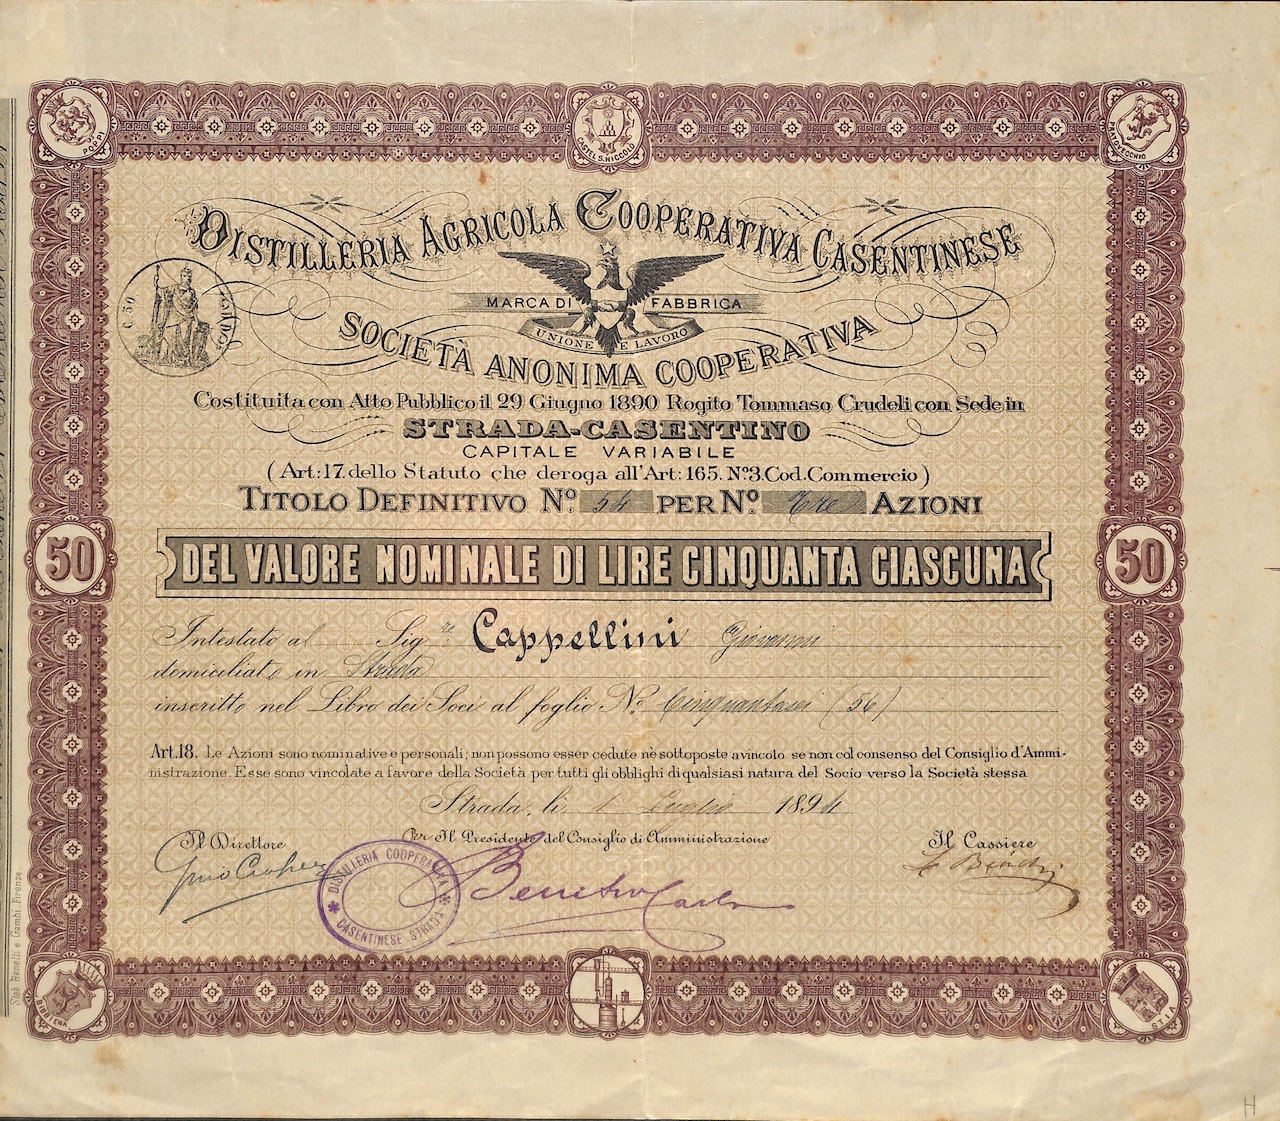 POPPI
CASTEL S. NICCOLÒ
PRATOVECCHIO
DISTILLERIA AGRICOLA COOPERATIVA CASENTINESE
MARCA DI FABBRICA
UNIONE E LAVORO
C. 50
SOCIETÀ ANONIMA COOPERATIVA
Costituita con Atto Pubblico il 29 Giugno 1890 Rogito Tommaso Crudeli con Sede in
STRADA-CASENTINO
CAPITALE VARIABILE
(Art: 17. dello Statuto che deroga all'Art: 165. Nº 3. Cod. Commercio)
TITOLO DEFINITIVO Nº. 54 PER Nº. Tre AZIONI
50
DEL VALORE NOMINALE DI LIRE CINQUANTA CIASCUNA
50
Intestato al Sigre Cappellini Giovanni
domiciliato in Strada
inscritto nel Libro dei Soci al foglio Nº. Cinquantasei (56)
Art. 18. Le Azioni sono nominative e personali; non possono esser cedute nè sottoposte a vincolo se non col consenso del Consiglio d'Ammi-
nistrazione. Esse sono vincolate a favore della Società per tutti gli obblighi di qualsiasi natura del Socio verso la Società stessa
Strada, li 1 Luglio 1894
Il Direttore
Per Il Presidente del Consiglio di Amministrazione
Il Cassiere
DISTILLERIA COOPERATIVA
CASENTINESE STRADA
Carlo
Stab. Benelli e Gambi. Firenze
BIBBIENA
STIA
H